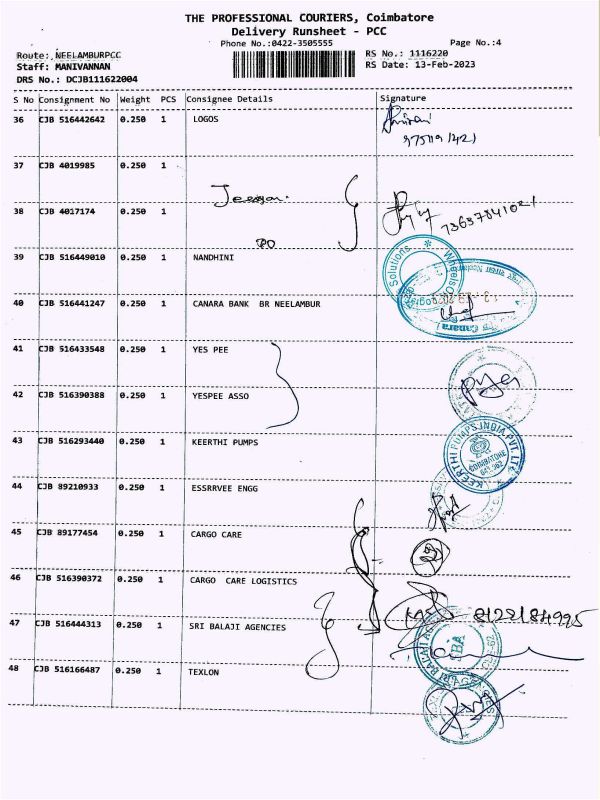 THE PROFESSIONAL COURIERS, Coimbatore
Delivery Runsheet - PCC
Phone No.:0422-3505555 Page No.:4
Route: NEELAMBURPCC RS No.: 1116220
Staff: MANIVANNAN RS Date: 13-Feb-2023
DRS No.: DCJB111622004
S No Consignment No Weight PCS Consignee Details Signature
36 CJB 516442642 0.250 1 LOGOS
37 CJB 4019985 0.250 1
38 CJB 4017174 0.250 1
39 CJB 516449010 0.250 1 NANDHINI
40 CJB 516441247 0.250 1 CANARA BANK BR NEELAMBUR
41 CJB 516433548 0.250 1 YES PEE
42 CJB 516390388 0.250 1 YESPEE ASSO
43 CJB 516293440 0.250 1 KEERTHI PUMPS
KEERTHI PUMPS INDIA PVT. LTD
COIMBATORE
44 CJB 89210933 0.250 1 ESSRRVEE ENGG
45 CJB 89177454 0.250 1 CARGO CARE
46 CJB 516390372 0.250 1 CARGO CARE LOGISTICS
47 CJB 516444313 0.250 1 SRI BALAJI AGENCIES
48 CJB 516166487 0.250 1 TEXLON